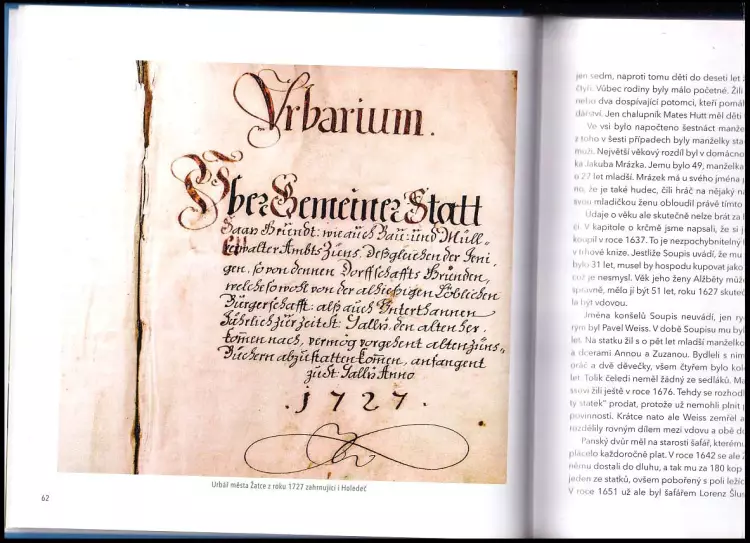 Urbarium.
Über Gemeiner Statt
Saaz Gründt: wie auch Bau: und Müll=
verwalter Ambts Züns, Deßgleichen der Jeni=
gen, so von dennen Dorffschaffts Gründen,
welche so wohl von der alhießigen Löblichen
Bürgerschafft: alß auch Unterthannen
Jährlich zur zeit St: Gallÿ, den alten her=
komen nach, vermög vorgehent alten Züns=
Büchern abzustatten komen, anfangent
zu St: Gallÿ Anno
. 1727 .
Urbář města Žatce z roku 1727 zahrnující i Holedeč
62
jen sedm, naproti tomu děti do deseti let
čtyři. Vůbec rodiny byly málo početné. Žili
nebo dva dospívající potomci, kteří pomál
Jen chalupník Mates Hutt měl děti
Ve vsi bylo napočteno šestnáct manžel
z toho v šesti případech byly manželky sta
muži. Největší věkový rozdíl byl v domácno
ka Jakuba Mrázka. Jemu bylo 49, manželka
o 27 let mladší. Mrázek má u svého jména p
no, že je také hudec, čili hráč na nějaký ná
svou mladičkou ženu obloudil právě tímto
Údaje o věku ale skutečně nelze brát za
V kapitole o krčmě jsme napsali, že si j
koupil v roce 1637. To je nezpochybnitelný
v trhové knize. Jestliže Soupis uvádí, že mu
bylo 31 let, musel by hospodu kupovat jako
což je nesmysl. Věk jeho ženy Alžběty může
správně, mělo jí být 51 let, roku 1627 skuteč
la být vdovou.
Jména konšelů Soupis neuvádí, jen ry
rým byl Pavel Weiss. V době Soupisu mu by
let. Na statku žil s o pět let mladší manželko
a dcerami Annou a Zuzanou. Bydleli s nim
oráč a dvě děvečky, všem čtyřem bylo kol
let. Tolik čeledi neměl žádný ze sedláků. Ma
žili ještě v roce 1676. Tehdy se rozhod
ty statek" prodat, protože už nemohli plnit
povinnosti. Krátce nato ale Weiss zemřel a
rozdělily rovným dílem mezi vdovu a obě d
Panský dvůr měl na starosti šafář, kterému
plácelo každoročně plat. V roce 1642 se ale
němu dostali do dluhu, a tak mu za 180 kop
jeden ze statků, ovšem pobořený s poli ležíc
V roce 1651 už ale byl šafářem Lorenz Šlus